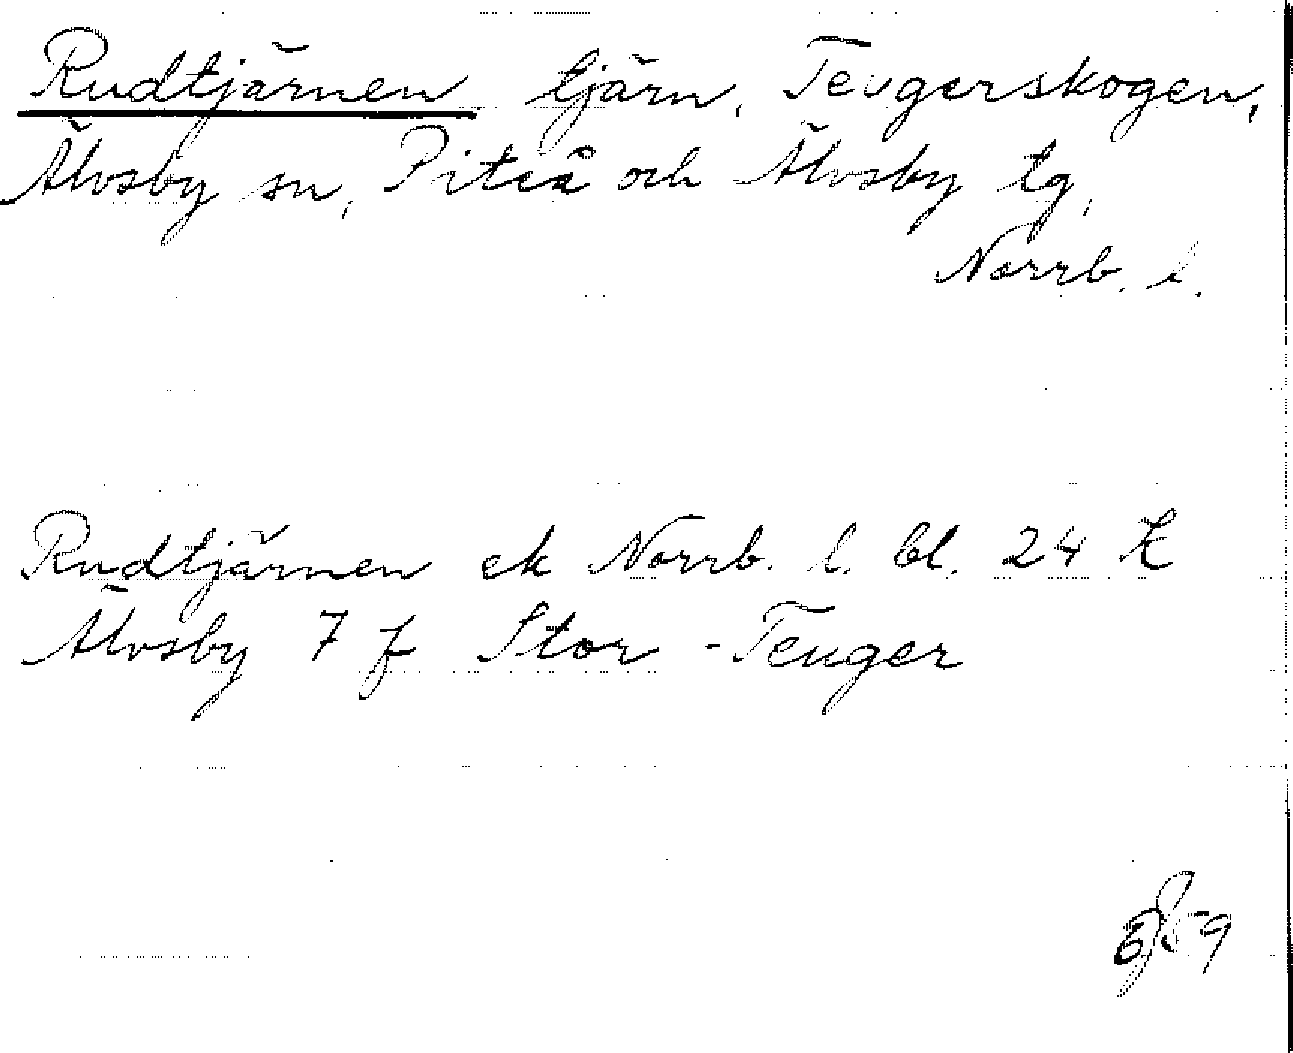 Rudtjärnen tjärn, Teugerskogen,
Älvsby sn, Piteå och Älvsby tg,
Norrb. l.
Rudtjärnen ek Norrb. l. bl. 24 K
Älvsby 7 f Stor-Teuger